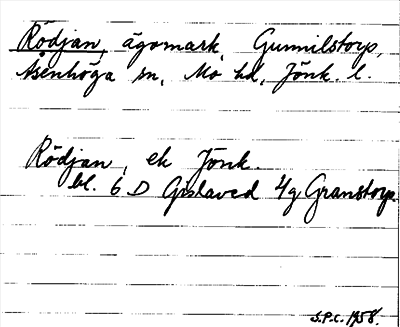 Rödjan, ägomark, Gunnilstorp,
Åsenhöga sn, Mo hd, Jönk. l.
Rödjan, ek Jönk.
bl. 6 D Gislaved 4g Granstorp
S.P.C. 1958.